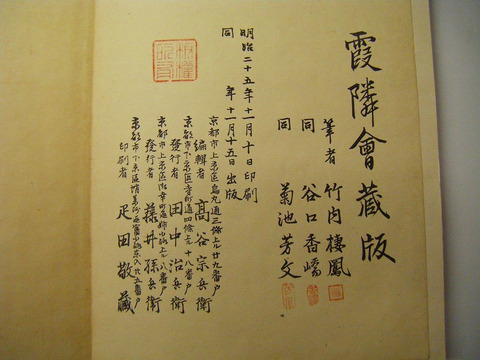 霞隣會蔵版
筆者 竹内棲鳳
同 谷口香嶠
同 菊池芳文
明治二十五年十一月十日印刷
同 年十一月十五日出版
京都市上京區烏丸通三條上ル廿九番戸
編輯者 高谷宗兵衛
京都市下京區寺町通四條 十八番戸
發行者 田中治兵衛
京都市上京區 八番戸
發行者 藤井孫兵衛
京都市下京區 入廿五番戸
印刷者 疋田敬藏